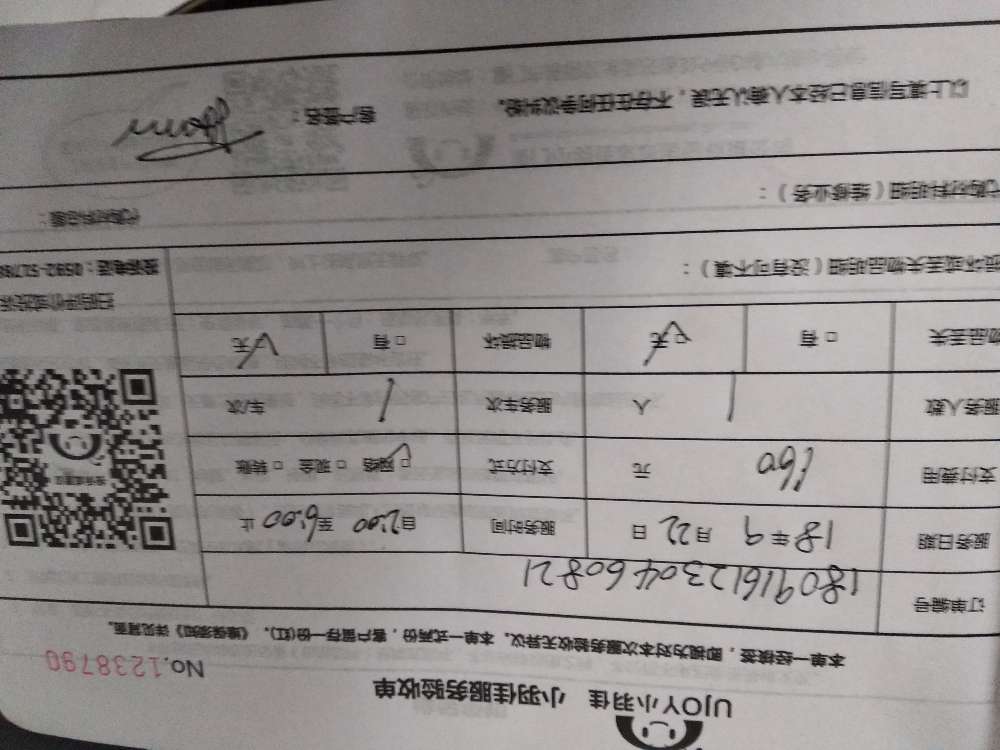 UJOY小羽佳 小羽佳服务验收单
No.1238790
本单一经核签，即视为对本次服务验收无异议。本单一式两份，客户留存一份(红)。《维保须知》详见背面。
订单编号 1809161230460821
服务日期 18年9月22日 服务时间 自2:00至6:00止
支付费用 160 元 支付方式 □网络 □现金 □转账
服务人数 1 人 服务车次 1 车/次
物品丢失 □有 □无 物品损坏 □有 □无
损坏或丢失物品明细（没有可不填）：
扫码评价或投诉
投诉电话：0592-
代购材料明细（维修业务）：
代购材料总额：
以上填写信息已经本人确认无误，不存在任何争议纠纷。 客户签名：